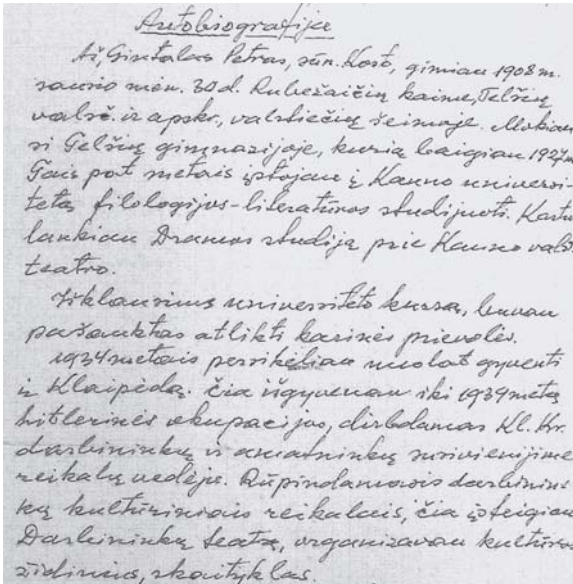 Autobiografija
Aš, Gintalas Petras, sūn. Kosto, gimiau 1908 m.
sausio mėn. 30 d. Rubežaičių kaime, Telšių
valsč. ir apskr., valstiečių šeimoje. Mokiau
si Telšių gimnazijoje, kurią baigiau 1927 m.
Tais pat metais įstojau į Kauno universi-
tetą filologijos-literatūros studijuoti. Kartu
lankiau Dramos studiją prie Kauno valst.
teatro.
Išklausius universiteto kursą, buvau
pašauktas atlikti karinės prievolės.
1934 metais persikėliau nuolat gyventi
į Klaipėdą. Čia išgyvenau iki 1939 metų
hitlerinės okupacijos, dirbdamas Kl. Kr.
darbininkų ir amatininkų susivienijime
reikalų vedėju. Rūpindamasis darbinin
kų kultūriniais reikalais, čia įsteigiau
Darbininkų teatrą, organizavau kultūros
židinius, skaityklas.